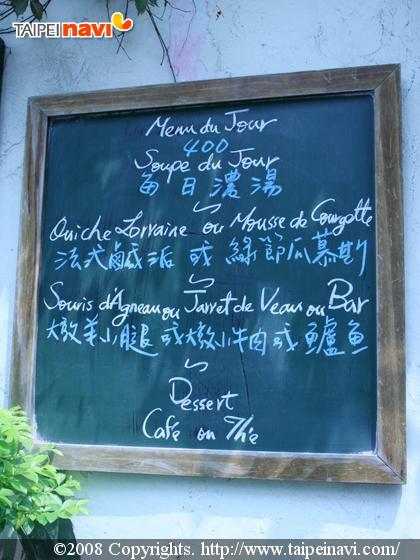 TAIPEI navi
Menu du Jour
400
Soupe du Jour
每日濃湯
Quiche Lorraine ou Mousse de Courgette
法式鹹派 或 綠節瓜慕斯
Souris d'Agneau ou Jarret de Veau ou Bar
燉羊小腿 或燉小牛肉或 鱸魚
Dessert
Cafe ou Thé
©2008 Copyrights. http://www.taipeinavi.com/